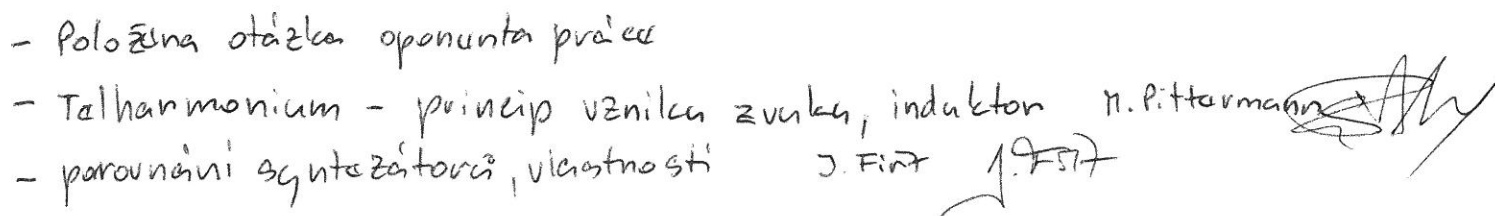 - Položena otázka oponenta práce
- Telharmonium - princip vzniku zvuku, induktor M. Pittermann
- porovnání syntezátorů, vlastnosti J. Fiřt